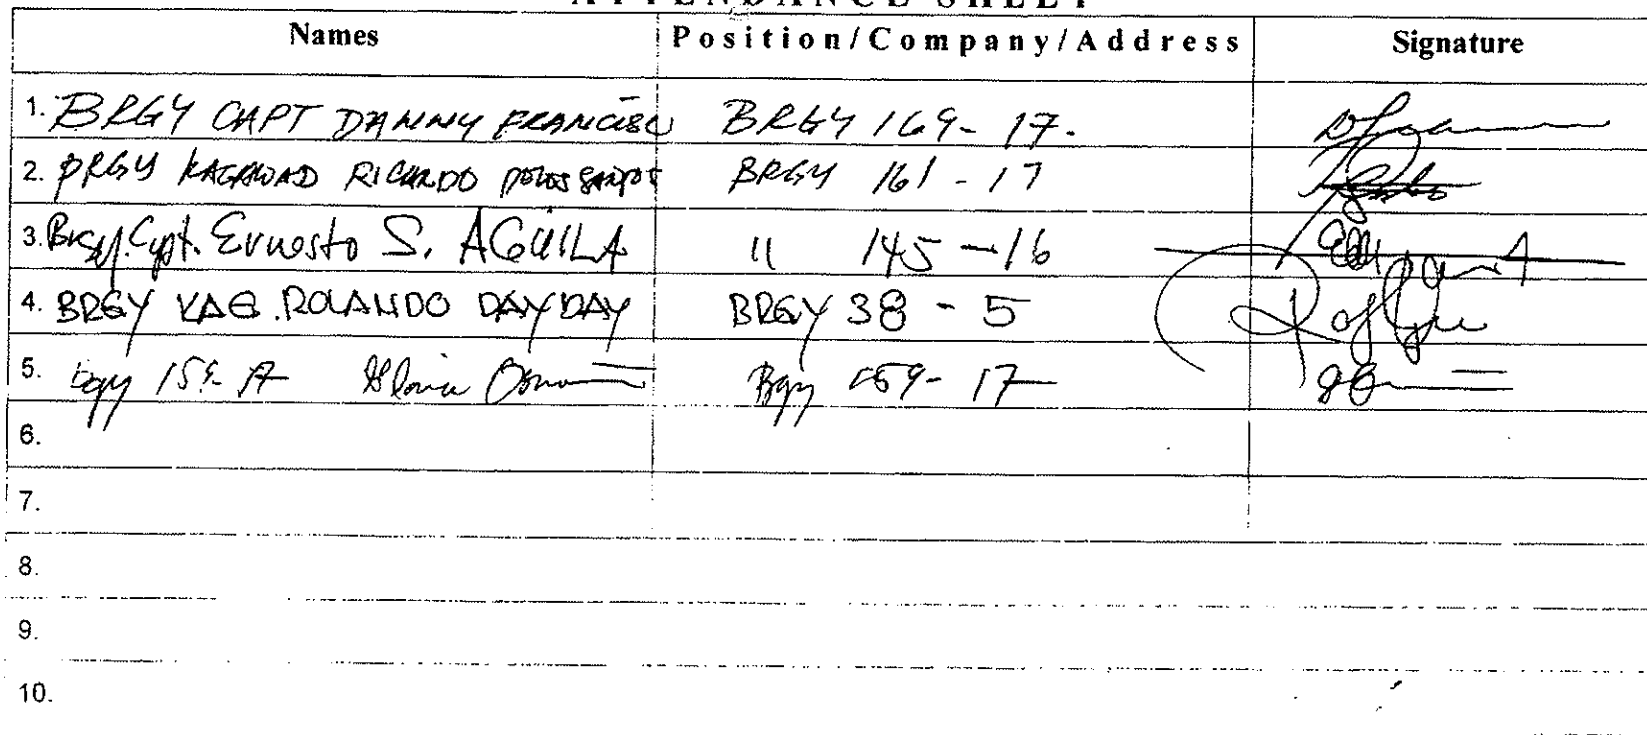 ATTENDANCE SHEET
Names Position/Company/Address Signature
1. BRGY CAPT DANNY FRANCISCO BRGY 169-17.
2. BRGY KAGAWAD RICARDO DELOS SANTOS BRGY 161-17
3. Brgy. Cpt. Ernesto S. AGUILA 11 145-16
4. BRGY KAG. ROLANDO DAYDAY BRGY 38-5
5. Bgy 159-17 Gloria Bgy 159-17
6.
7.
8.
9.
10.